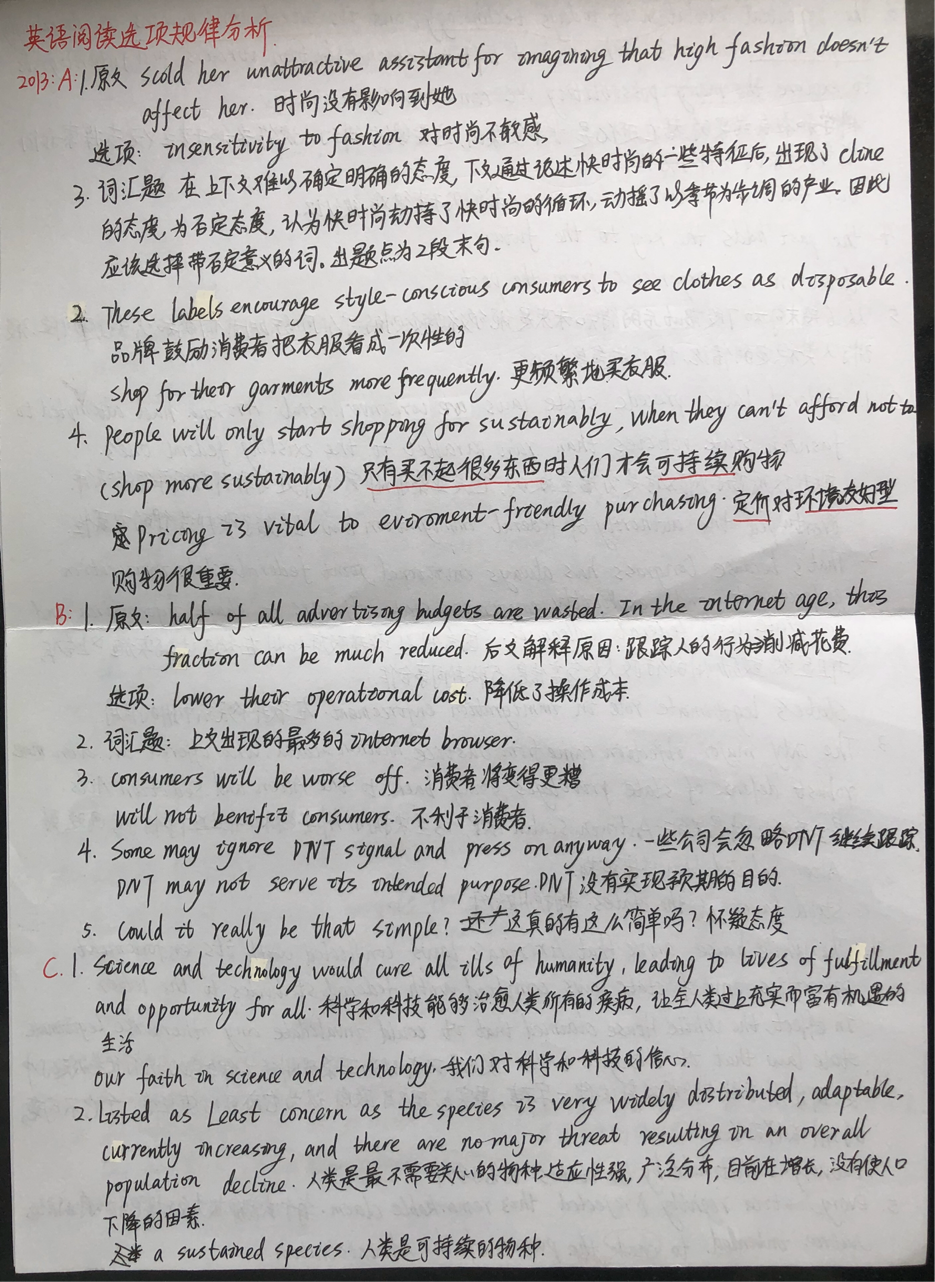 英语阅读选项规律分析.
2013: A: 1. 原文 scold her unattractive assistant for imagining that high fashion doesn't
affect her. 时尚没有影响到她
选项: insensitivity to fashion 对时尚不敏感.
3. 词汇题 在上下文难以确定明确的态度, 下文通过论述快时尚的一些特征后, 出现了 cline
的态度, 为否定态度, 认为快时尚劫持了快时尚的循环, 动摇了以季节为步调的产业. 因此
应该选择带否定意义的词. 出题点为2段末句.
2. These labels encourage style-conscious consumers to see clothes as disposable.
品牌鼓励消费者把衣服看成一次性的
shop for their garments more frequently. 更频繁地买衣服.
4. people will only start shopping for sustainably, when they can't afford not to
(shop more sustainably) 只有买不起很多东西时人们才会可持续购物
Pricing is vital to eviroment-friendly purchasing. 定价对环境友好型
购物很重要.
B: 1. 原文: half of all advertising budgets are wasted. In the internet age, this
fraction can be much reduced. 后文解释原因: 跟踪人的行为消减花费.
选项: lower their operational cost. 降低了操作成本.
2. 词汇题: 上文出现的最多的 internet browser.
3. consumers will be worse off. 消费者将变得更糟
will not benifit consumers. 不利于消费者.
4. Some may ignore DNT signal and press on anyway. 一些公司会忽略DNT 继续跟踪.
DNT may not serve its intended purpose. DNT 没有实现预期的目的.
5. could it really be that simple? 这真的有这么简单吗? 怀疑态度
C. 1. Science and technology would cure all ills of humanity, leading to lives of fulfillment
and opportunity for all. 科学和科技能够治愈人类所有的疾病, 让全人类过上充实而富有机遇的
生活
our faith in science and technology. 我们对科学和科技的信心.
2. Listed as Least concern as the species is very widely distributed, adaptable,
currently increasing, and there are no major threat resulting in an overall
population decline. 人类是最不需要关心的物种, 适应性强, 广泛分布, 目前在增长, 没有使人口
下降的因素.
a sustained species. 人类是可持续的物种.